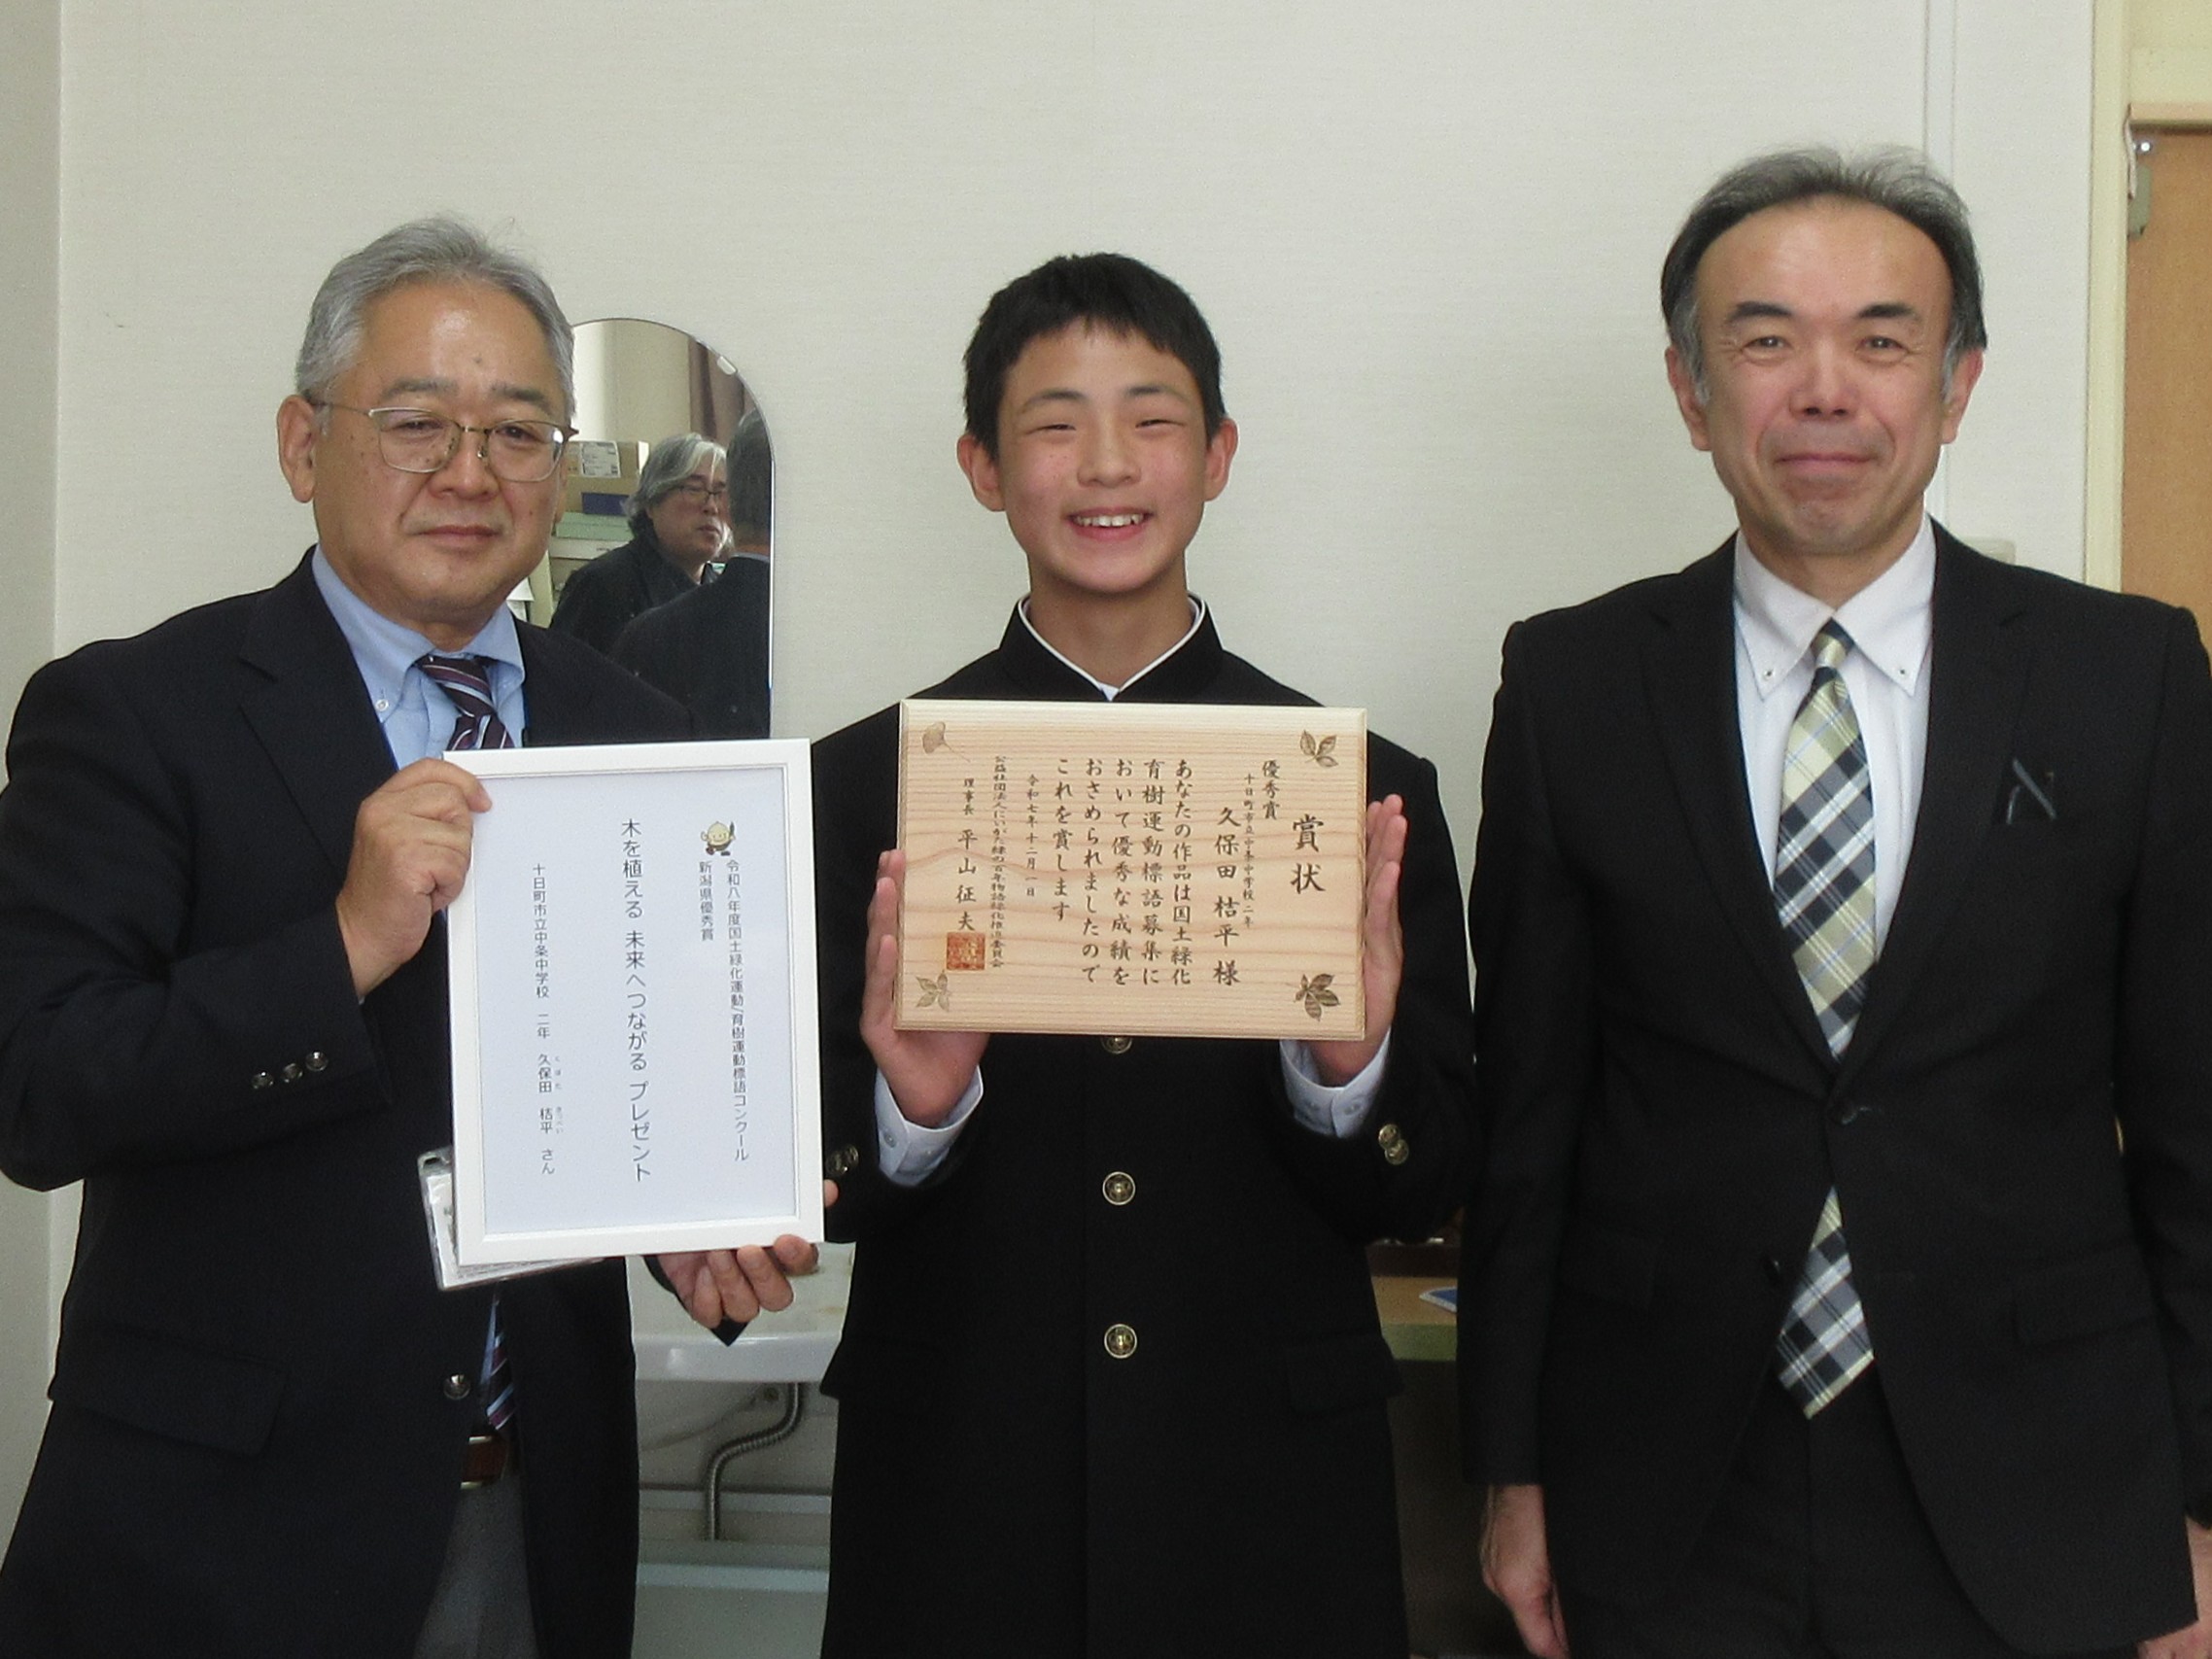 令和八年度国土緑化運動/育樹運動標語コンクール
新潟県優秀賞
木を植える 未来へつながる プレゼント
十日町市立中条中学校 二年 久保田 桔平 さん
賞状
優秀賞
十日町市立中条中学校二年
久保田 桔平 様
あなたの作品は国土緑化
育樹運動標語募集に
おいて優秀な成績を
おさめられましたので
これを賞します
令和七年十二月一日
公益社団法人にいがた緑の百年物語緑化推進委員会
理事長 平山征夫